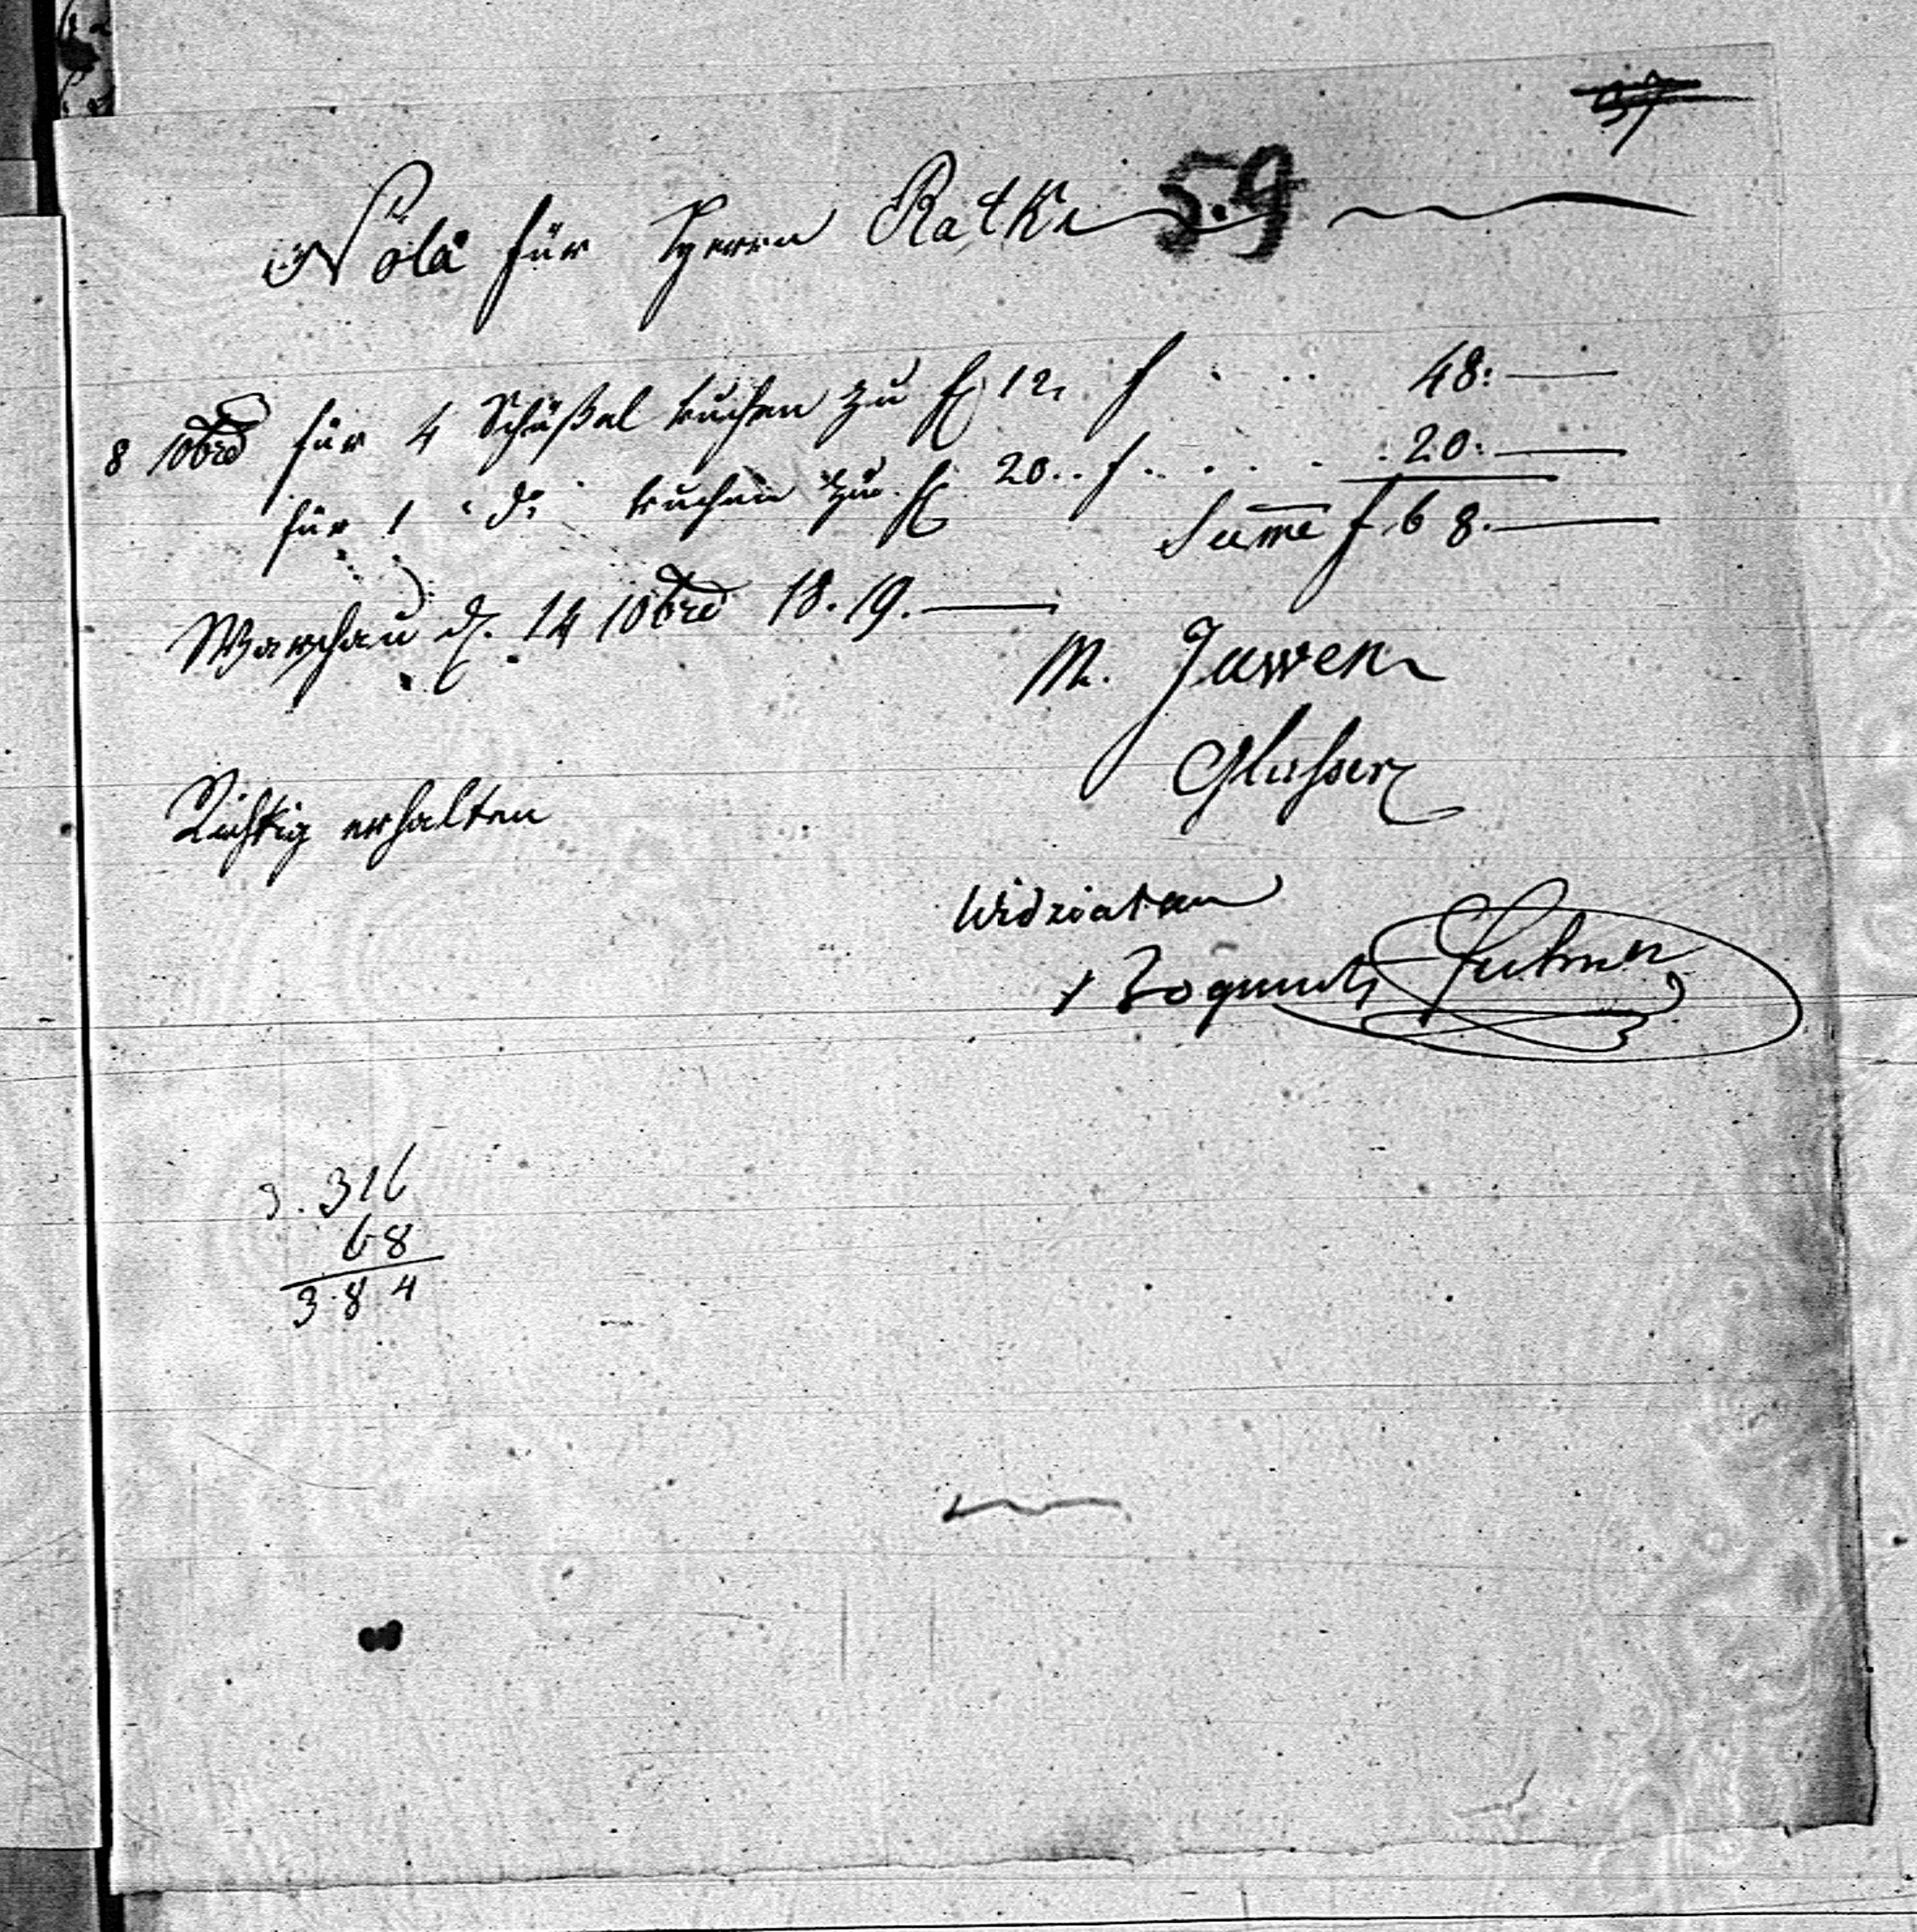 57
59
Nota für Herrn Ratke
8 10bre für 4 Schüßel kuchen zu f 12, f . . . 48: —
für 1 do kuchen zu f 20 . . f . . . . . 20: —
Suma f 68. —
Warschau d. 14 10bre 18.19. —
M. Jawen
Richtig erhalten
Widziałem
Zogmunt
316
68
384